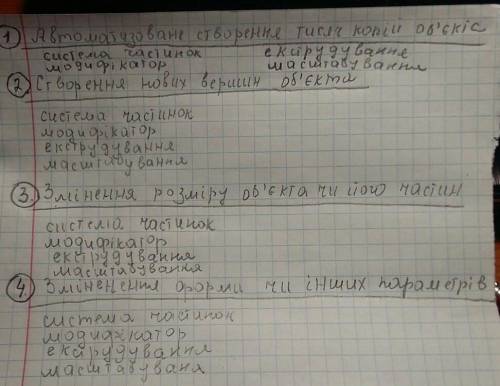 1 Автоматизоване створення тисяч копій об'єкіс
система частинок екструдування
модифікатор масштабування
2 Створення нових вершин об'єкта
система частинок
модифікатор
екструдування
масштабування
3. Змінення розміру об'єкта чи його частин
система частинок
модифікатор
екструдування
масштабування
4. Змінення форми чи інших параметрів
система частинок
модифікатор
екструдування
масштабуваня